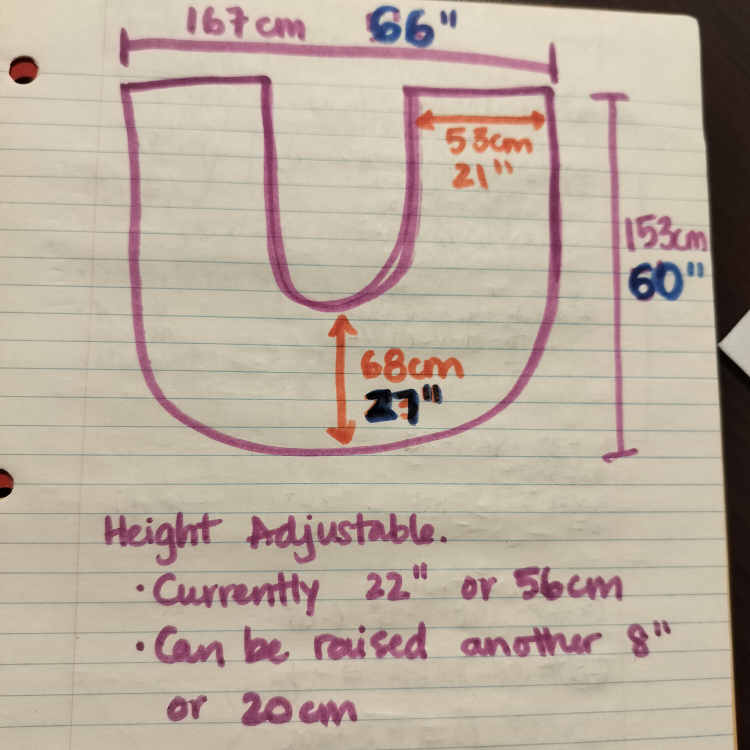 167cm 66"
53cm
21"
153cm
60"
68cm
27"
Height Adjustable.
· Currently 22" or 56cm
· Can be raised another 8"
or 20cm